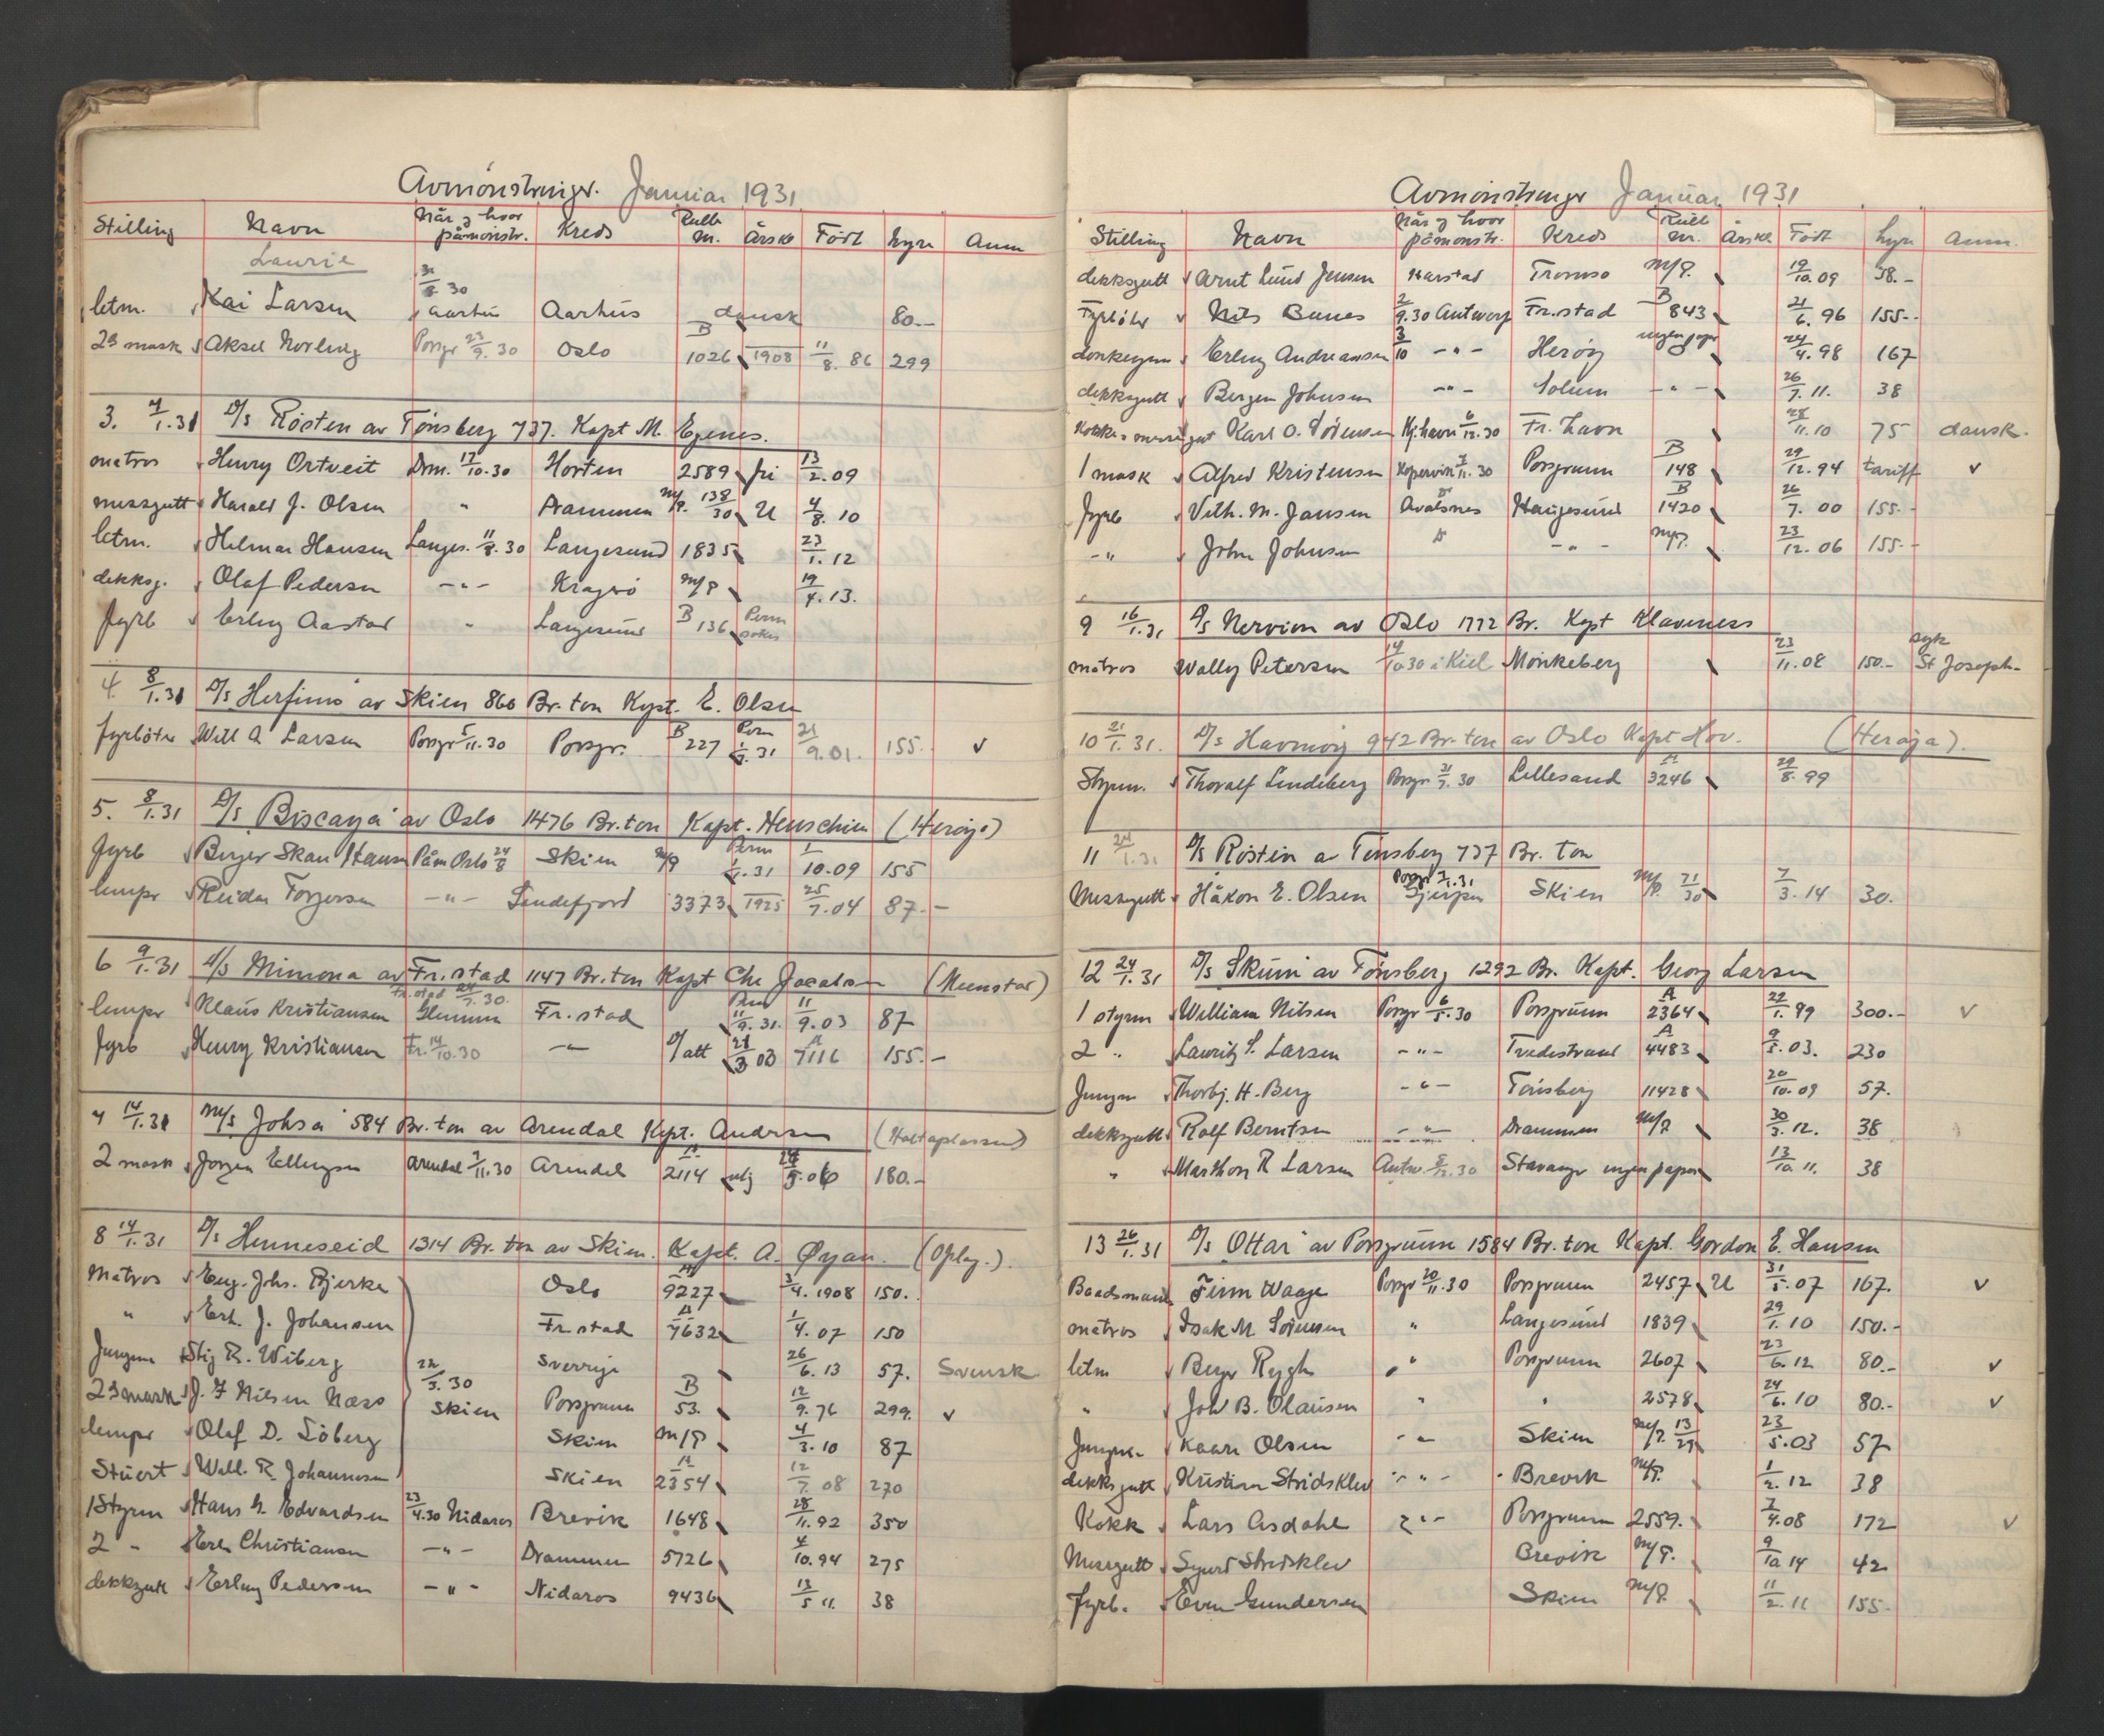 Avmönstringer. Januar 1931
Stilling Navn Når og hvor påmönstr. Kreds Rulle nr. Årskl Födt hyre Anm
Laurie
letm. Kai Larsen 31/8 30 Aarhus Aarhus dansk 80.-
2d mask Aksel Norling Porsgr 23/9. 30 Oslo B 1026 1908 11/8. 86 299
3. 7/1.31 D/s Rösten av Tönsberg 737. Kapt M. Egenes.
matros Henry Ortveit Drm. 17/10.30 Horten 2589 fri 13/2.09
messgutt Harald J. Olsen " Drammen m/P. 138/30 U 4/8. 10
letm. Helmar Hansen Langes. 11/8.30 Langesund 1835 23/1. 12
dekksg. Olaf Pedersen -"- Kragerö m/P 19/4. 13.
fyrb Erling Aastad " Langesund B 136
4. 8/1.31 D/s Herfinns av Skien 860 Br. ton Kapt. E. Olsen
fyrböter Will A Larsen Porsgr 5/11.30 Porsgr. B 227 Perm 1/1.31 21/9.01. 155. v
5. 8/1.31 D/s Biscaya av Oslo 1476 Br. ton Kapt. Henschien (Heröya)
fyrb Birger Skau Hansen Påm Oslo 24/8 Skien m/P Perm 1/1.31 1/10.09 155
lempr Reidar Torgersen -"- Sandefjord 3373 1925 25/7.04 87.-
6 9/1.31 D/s Mimona av Fr.stad 1147 Br. ton Kapt Chr Jacobsen (Menstad)
lempr Klaus Kristiansen Fr.stad 24/7.30. Glemmen Fr. stad 11/9. 31. 11/9.03 87
fyrb Henry Kristiansen Fr. 14/10.30 -"- D/att 21/3 03 A 7116 155.-
7 14/1.31 M/s Johsa 584 Br. ton av Arendal Kapt. Andersen
2 mask Jörgen Ellingsen Arendal 7/11.30 Arendal A 2114 24/5.06 180.-
8 14/1.31 D/s Henneseid 1314 Br. ton av Skien. Kapt. A. Öyan. (Oplag.)
Matros Eug. Johs. Bjerke Oslo A 9227 3/4. 1908 150.
" Erl. J. Johansen Fr.stad A 7632 1/4. 07 150
Jungm Stig R. Wiberg 22/5.30 Sverrige 26/6. 13 57. Svensk
2d mask J. F Nilsen Næss Skien Porsgrunn B 53. 12/9. 76 299. v
lempr Olaf D. Söberg Skien m/P 4/3. 10 87
Stuert Wall. R. Johannesen Skien A 2354 12/7. 08 270
1 Styrm Hans G. Edvardsen 23/4.30 Nidaros Brevik 1648 28/11.92 350
2 - Erl. Christiansen -"- Drammen 5726 4/10.94 275
dekksgutt Erling Pedersen -"- Nidaros 9436 13/5 11. 38
Avmönstringer Januar 1931
Stilling Navn Når og hvor påmönstr. Kreds Rull nr. Årskl Födt hyre Anm.
dekksgutt Arnt Lund Jensen Harstad Tromsö m/P. 19/10.09 38.-
Fyrböter Nils Bunes 2/9.30 Antwerp Fr.stad B 843 21/6. 96 155.-
donkeym Erling Andreassen 3/10 -"- Heröy ingen papir 24/4. 98 167
dekksgutt Bergen Johnsen -"- Solum -"- 26/7. 11. 38
Kokk & messegut Karl O. Sörensen Kj.havn 6/12.30 Fr. havn 28/11.10 75 dansk.
1 mask Alfred Kristensen Kopervik 7/11.30 Porsgrunn B 148 29/12.94 tariff v
fyrb Vilh. M. Jansen Avalsnes Haugesund B 1420 26/7. 00 155.-
-"- John Johnsen -"- m/P. 23/12.06 155.-
9 16/1.31 D/s Nervion av Oslo 1772 Br. Kapt Klaveness
matros Wally Petersen 14/10 30 i Kiel Mönkeberg 23/11.08 150.- syk St Joseph-
10 21/1.31. D/s Havmöy 942 Br. ton av Oslo Kapt Hov. (Heröya).
Styrm. Thoralf Lindeberg Porsgr 31/7.30 Lillesand A 3246 29/8.99
11 24/1.31 D/s Rösten a Tönsberg 737 Br. ton
Messgutt Håkon E. Olsen Porsgr 7/1.31 Gjerpen Skien m/P. 21/30 7/3. 14 30.
12 24/1.31 D/s Skum av Tönsberg 1292 Br. Kapt. Georg Larsen
1 styrm William Nilsen Porsgr 6/5.30 Porsgrunn A 2364 22/1. 99 300.- v
2 " Lauritz S. Larsen -"- Tvedestrand A 4483 9/5.03. 230
Jungm Thorbj. H. Berg -"- Tönsberg 11428 20/10.09 57.
dekksgutt Rolf Berntsen -"- Drammen m/P 30/3. 12. 38
" Marthon R Larsen Antw. 30 Stavanger ingen papir 13/10 11. 38
13 26/1.31 D/s Ottar av Porsgrunn 1584 Br. ton Kapt. Gordon E. Hansen
Baadsmand Finn Waage Porsgr 20/11.30 Porsgrunn 2457 U 31/5.07 167. v
matros Isak M Sörensen " Langesund 1839 29/1. 10 150.-
letm Birger Rygh " Porsgrunn 2607 23/6. 12 80.- v
" Joh B. Olausen " " 2578 24/6. 10 80.- v
Jungm. Kaare Olsen -"- Skien m/P. 13/29 23/5.03 57
dekksgutt Kristian Stridsklev -"- Brevik m/P. 1/2. 12 38
Kokk Lars Aasdahl -"- Porsgrunn 2559. 7/4.08 172 v
Messgutt Sigurd Stridsklev Brevik m/P. 9/10 14 42
fyrb. Even Gundersen Skien m/P. 11/2. 11 155-